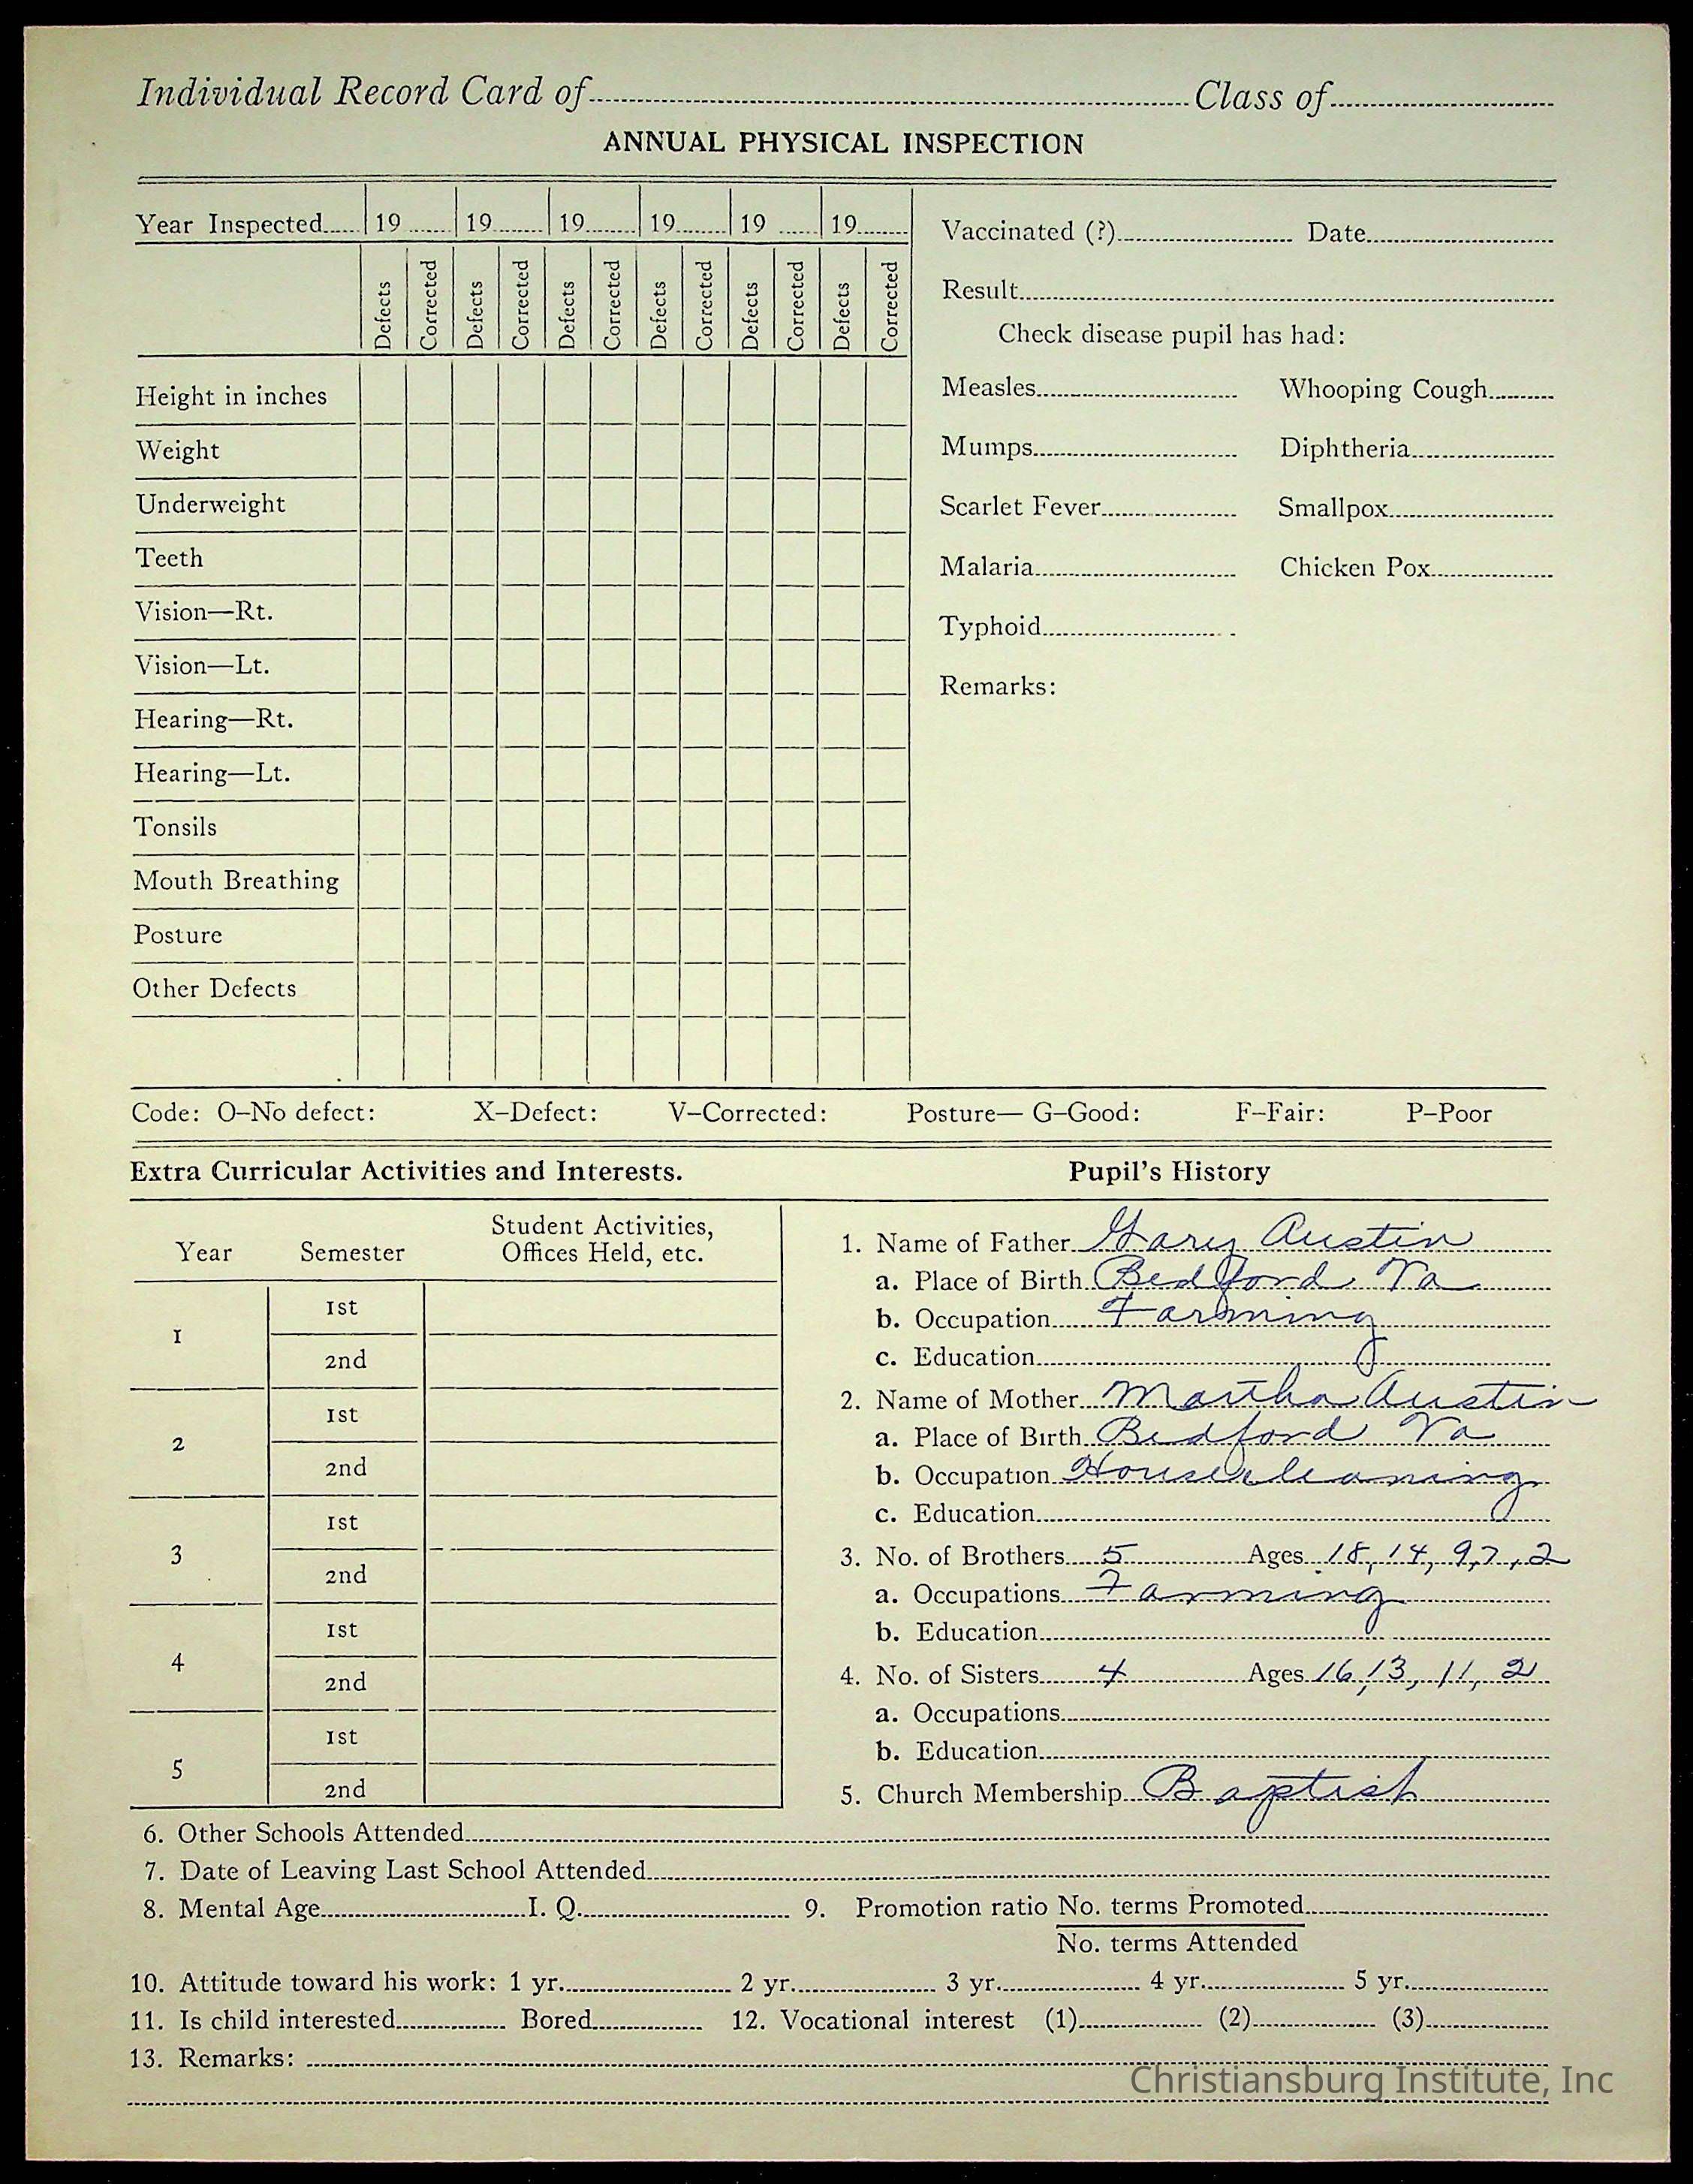 Individual Record Card of Class of
ANNUAL PHYSICAL INSPECTION
Year Inspected 19 19 19 19 19 19
Defects Corrected Defects Corrected Defects Corrected Defects Corrected Defects Corrected Defects Corrected
Height in inches
Weight
Underweight
Teeth
Vision—Rt.
Vision—Lt.
Hearing—Rt.
Hearing—Lt.
Tonsils
Mouth Breathing
Posture
Other Defects
Vaccinated (?) Date
Result
Check disease pupil has had:
Measles Whooping Cough
Mumps Diphtheria
Scarlet Fever Smallpox
Malaria Chicken Pox
Typhoid
Remarks:
Code: O–No defect: X–Defect: V–Corrected: Posture— G–Good: F–Fair: P–Poor
Extra Curricular Activities and Interests.
Year Semester Student Activities,
Offices Held, etc.
1 1st
2nd
2 1st
2nd
3 1st
2nd
4 1st
2nd
5 1st
2nd
Pupil's History
1. Name of Father Gary Austin
a. Place of Birth Bedford Va
b. Occupation Farming
c. Education
2. Name of Mother Martha Austin
a. Place of Birth Bedford Va
b. Occupation Housecleaning
c. Education
3. No. of Brothers 5 Ages 18, 14, 9, 7, 2
a. Occupations Farming
b. Education
4. No. of Sisters 4 Ages 16, 13, 11, 2
a. Occupations
b. Education
5. Church Membership Baptist
6. Other Schools Attended
7. Date of Leaving Last School Attended
8. Mental Age I. Q. 9. Promotion ratio No. terms Promoted
No. terms Attended
10. Attitude toward his work: 1 yr. 2 yr. 3 yr. 4 yr. 5 yr.
11. Is child interested Bored 12. Vocational interest (1) (2) (3)
13. Remarks:
Christiansburg Institute, Inc